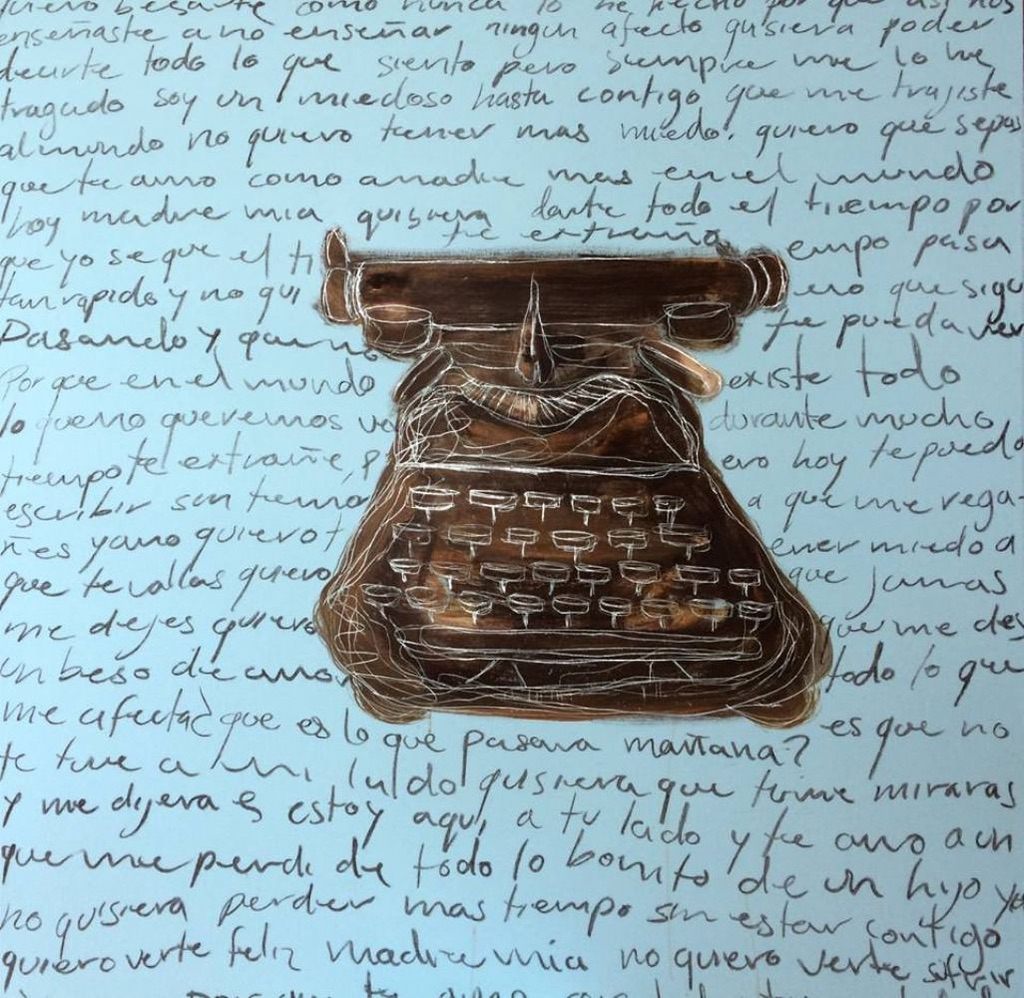 quiero besarte como nunca lo he hecho por que así nos
enseñaste a no enseñar ningun afecto qusiera poder
decirte todo lo que siento pero siempre me lo he
tragado soy un miedoso hasta contigo que me trajiste
al mundo no quiero tener mas miedo. quiero que sepas
que te amo como a nadie mas en el mundo
hoy madre mia quisiera darte todo el tiempo por
que yo se que el ti te extraña empo pasa
tan rapido y no qui ero que siga
pasando y que no te pueda ver
Por que en el mundo existe todo
lo que no queremos durante mucho
tiempo te extrañe, p ero hoy te puedo
escribir sin temo a que me rega-
ñes ya no quiero t ener miedo a
que te vallas quiero que jamas
me dejes quiero que me des
un beso de amor todo lo que
me afecta ¿que es lo que pasara mañana? es que no
te tuve a mi lado qusiera que tume miraras
y me dijeras estoy aqui a tu lado y te amo aun
que me perdi de todo lo bonito de un hijo yo
no quisiera perder mas tiempo sin estar contigo
quiero verte feliz madre mia no quiero verte sufrir